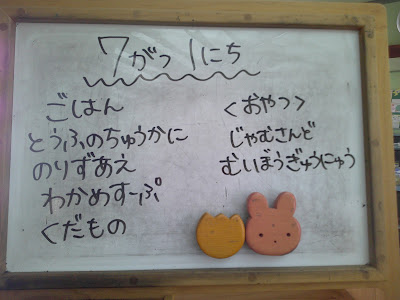 7がつ1にち
ごはん
とうふのちゅうかに
のりずあえ
わかめすーぷ
くだもの
<おやつ>
じゃむさんど
むしぼうぎゅうにゅう